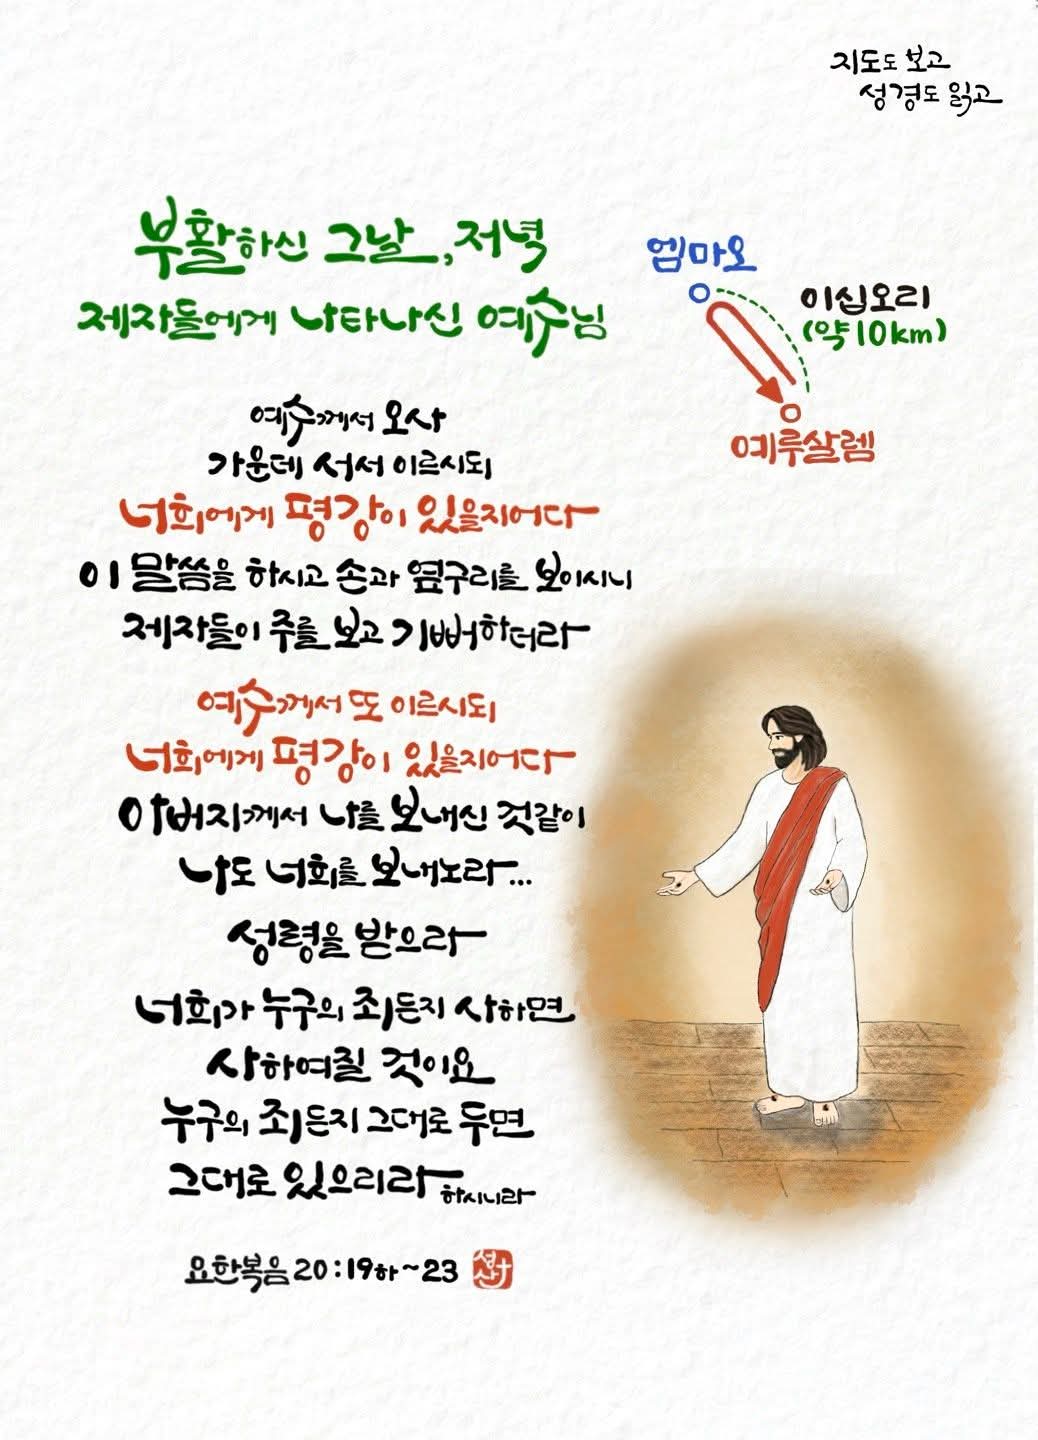 지도도 보고
성경도 읽고
부활하신 그날, 저녁
제자들에게 나타나신 예수님
엠마오
이십오리
(약 10km)
예루살렘
예수께서 오사
가운데 서서 이르시되
너희에게 평강이 있을지어다
이 말씀을 하시고 손과 옆구리를 보이시니
제자들이 주를 보고 기뻐하더라
예수께서 또 이르시되
너희에게 평강이 있을지어다
아버지께서 나를 보내신 것같이
나도 너희를 보내노라...
성령을 받으라
너희가 누구의 죄든지 사하면
사하여질 것이요
누구의 죄든지 그대로 두면
그대로 있으리라 하시니라
요한복음 20:19하~23